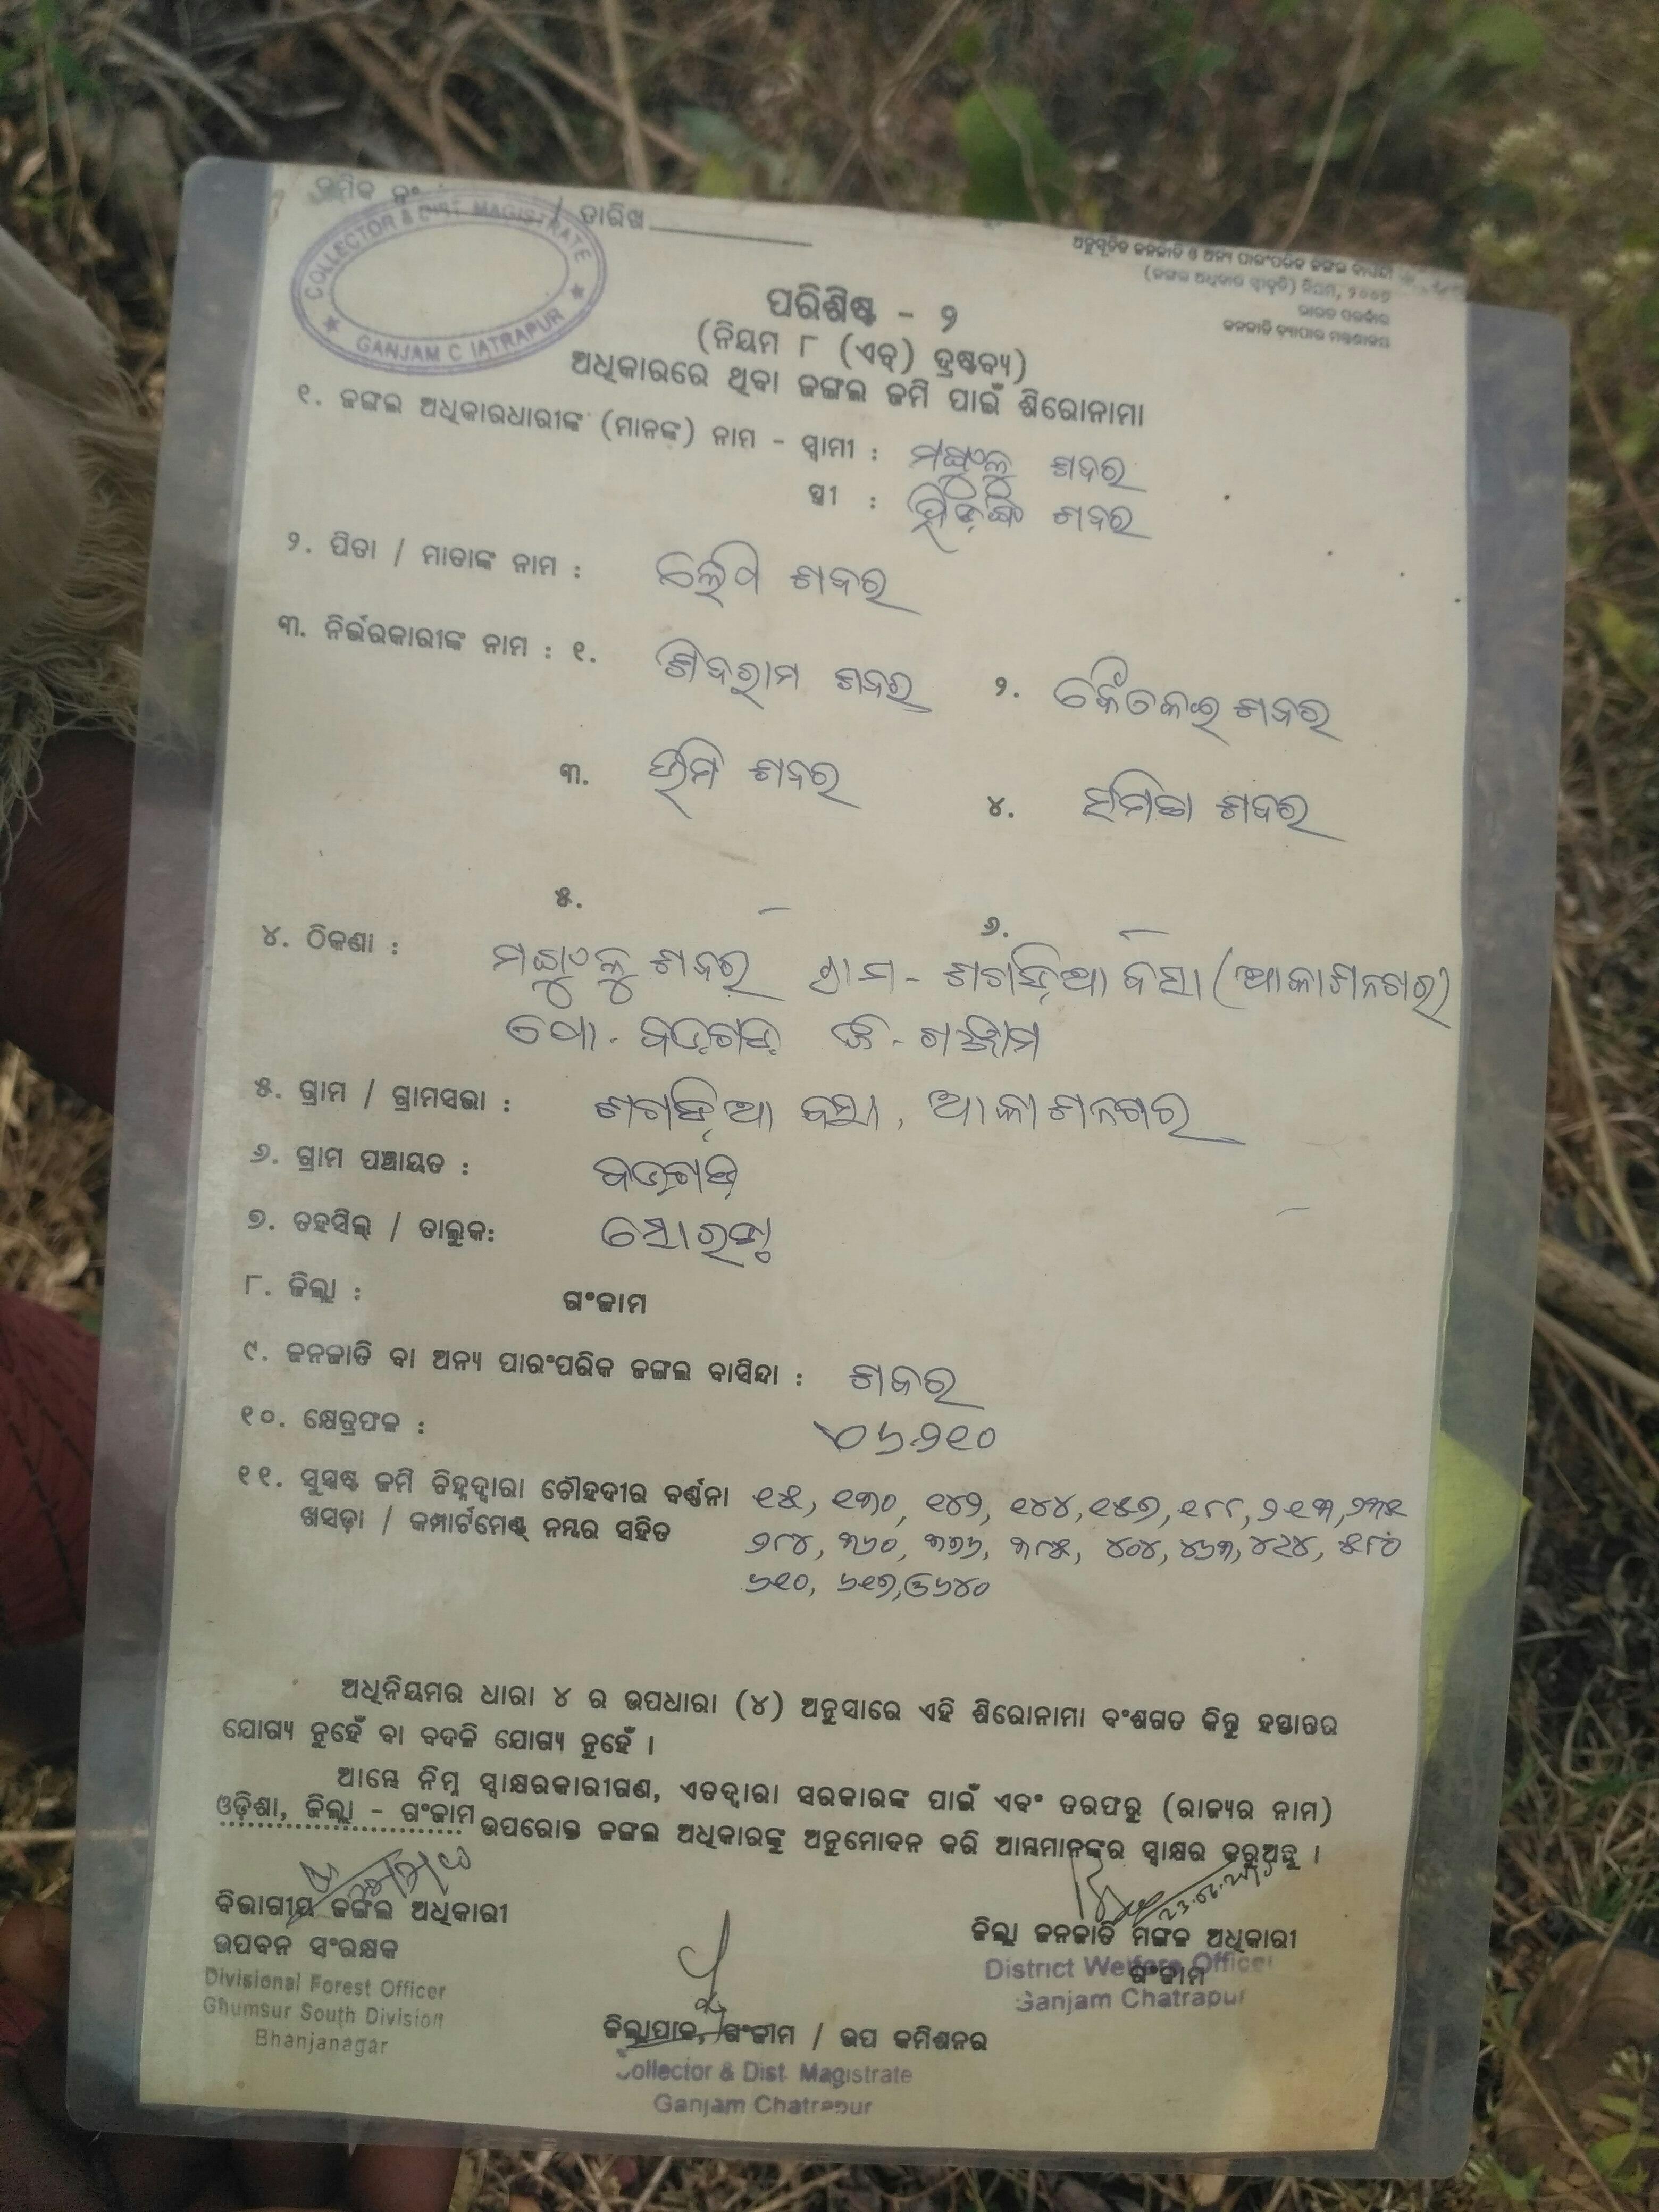 କ୍ରମିକ ନଂ / ତାରିଖ
COLLECTOR & DIST. MAGISTRATE
GANJAM C IATRAPUR
ଅନୁସୂଚିତ ଜନଜାତି ଓ ଅନ୍ୟ ପାରଂପରିକ ଜଙ୍ଗଲ ବାସିନ୍ଦା
(ଜଙ୍ଗଲ ଅଧିକାର ସ୍ୱୀକୃତି) ନିୟମ, ୨୦୦୭
ଭାରତ ସରକାର
ଜନଜାତି ବ୍ୟାପାର ମନ୍ତ୍ରଣାଳୟ
ପରିଶିଷ୍ଟ - ୨
(ନିୟମ ୮ (ଏଚ୍) ଦ୍ରଷ୍ଟବ୍ୟ)
ଅଧିକାରରେ ଥିବା ଜଙ୍ଗଲ ଜମି ପାଇଁ ଶିରୋନାମା
୧. ଜଙ୍ଗଲ ଅଧିକାରଧାରୀଙ୍କ (ମାନଙ୍କ) ନାମ - ସ୍ୱାମୀ : ମଙ୍ଗୁଳୁ ଶବର
ସ୍ତ୍ରୀ : ଶବର
୨. ପିତା / ମାତାଙ୍କ ନାମ : ଶବର
୩. ନିର୍ଭରକାରୀଙ୍କ ନାମ : ୧. ଶିବରାମ ଶବର ୨. କୈକେଇ ଶବର
୩. ଶବର ୪. ସମିତା ଶବର
୫. – ୬. –
୪. ଠିକଣା : ମଙ୍ଗୁଳୁ ଶବର ଗ୍ରାମ - ଶଗଡ଼ିଆ ବସା (ଆକାଶନଗର)
ପୋ - ବଡ଼ଗଡ଼ ଜି - ଗଞ୍ଜାମ
୫. ଗ୍ରାମ / ଗ୍ରାମସଭା : ଶଗଡ଼ିଆ ବସା, ଆକାଶନଗର
୬. ଗ୍ରାମ ପଞ୍ଚାୟତ : ବଡ଼ଗଡ଼
୭. ତହସିଲ୍ / ତାଲୁକ: ସୋରଡ଼ା
୮. ଜିଲ୍ଲା : ଗଂଜାମ
୯. ଜନଜାତି ବା ଅନ୍ୟ ପାରଂପରିକ ଜଙ୍ଗଲ ବାସିନ୍ଦା : ଶବର
୧୦. କ୍ଷେତ୍ରଫଳ : ୦୬.୨୧୦
୧୧. ସୁସ୍ପଷ୍ଟ ଜମି ଚିହ୍ନଦ୍ୱାରା ଚୌହଦୀର ବର୍ଣ୍ଣନା ୧୫, ୧୩୦, ୧୪୨, ୧୪୪, ୧୫୭, ୧୮୮, ୨୧୩, ୨୩୫
ଖସଡ଼ା / କମ୍ପାର୍ଟମେଣ୍ଟ୍ ନମ୍ବର ସହିତ ୨୮୪, ୩୬୦, ୩୭୬, ୩୮୫, ୪୦୪, ୪୬୩, ୪୨୪, ୫୮୦
୬୧୦, ୬୧୭, ଓ ୬୪୦
ଅଧିନିୟମର ଧାରା ୪ ର ଉପଧାରା (୪) ଅନୁସାରେ ଏହି ଶିରୋନାମା ବଂଶଗତ କିନ୍ତୁ ହସ୍ତାନ୍ତର
ଯୋଗ୍ୟ ନୁହେଁ ବା ବଦଳି ଯୋଗ୍ୟ ନୁହେଁ ।
ଆମ୍ଭେ ନିମ୍ନ ସ୍ୱାକ୍ଷରକାରୀଗଣ, ଏତଦ୍ୱାରା ସରକାରଙ୍କ ପାଇଁ ଏବଂ ତରଫରୁ (ରାଜ୍ୟର ନାମ)
ଓଡ଼ିଶା, ଜିଲ୍ଲା - ଗଂଜାମ ଉପରୋକ୍ତ ଜଙ୍ଗଲ ଅଧିକାରକୁ ଅନୁମୋଦନ କରି ଆମ୍ଭମାନଙ୍କର ସ୍ୱାକ୍ଷର କରୁଅଛୁ ।
ବିଭାଗୀୟ ଜଙ୍ଗଲ ଅଧିକାରୀ
ଉପବନ ସଂରକ୍ଷକ
Divisional Forest Officer
Ghumsur South Division
Bhanjanagar
ଜିଲ୍ଲା ଜନଜାତି ମଙ୍ଗଳ ଅଧିକାରୀ
ଗଂଜାମ
District Welfare Officer
Ganjam Chatrapur
ଜିଲ୍ଲାପାଳ, ଗଂଜାମ / ଉପ କମିଶନର
Collector & Dist. Magistrate
Ganjam Chatrapur